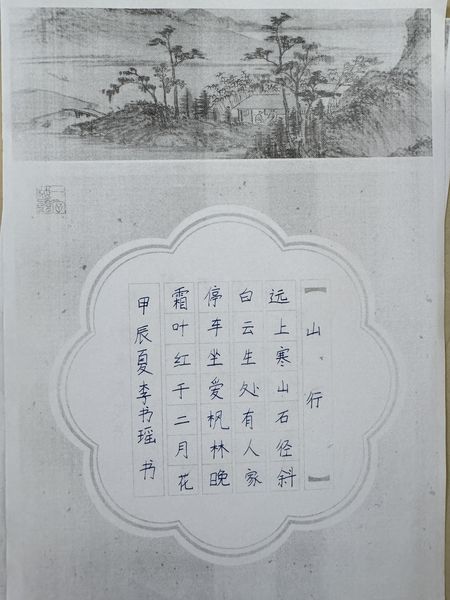 山行
远上寒山石径斜
白云生处有人家
停车坐爱枫林晚
霜叶红于二月花
甲辰夏李书瑶书